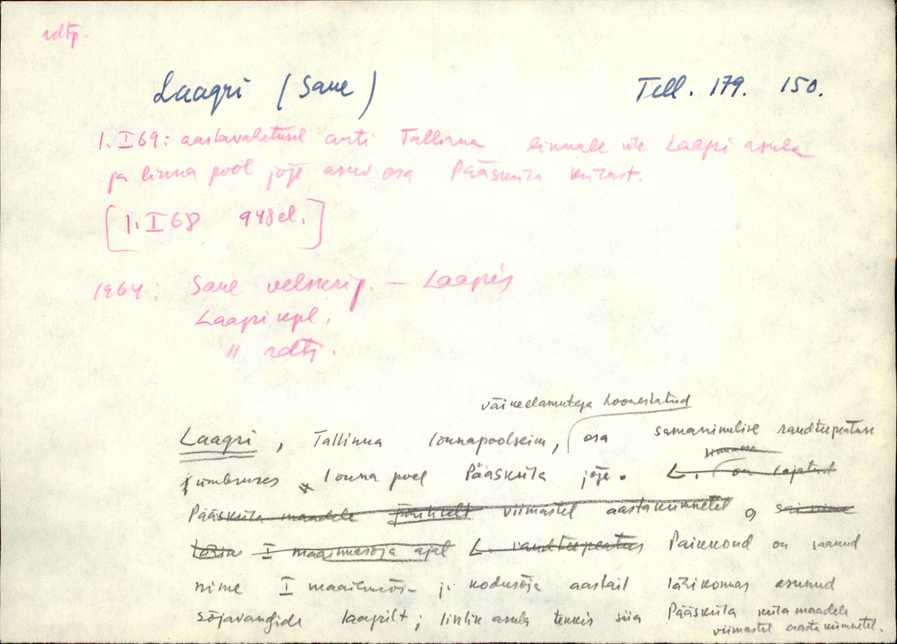 rdtp.
Laagri (Saue) Tell. 179. 150.
1. I 69: aastavahetusel anti Tallinna linnale üle Laagri asula
ja linna pool jõge asuv osa Pääsküla külast.
[1. I 68 948 el.]
1964: Saue velskerip. — Laagris
Laagri kpl.
" rdtj.
väikeelamutega hoonestatud
Laagri, Tallinna lõunapoolseim, osa samanimelise raudteepeatuse
ümbruses lõuna pool Pääsküla jõge. L. on rajatud
Pääsküla maadele viimastel aastakümnetel
I maailmasõja ajal L. raudteepeatus Paikkond on saanud
nime I maailmasõja ja kodusõja aastail läikonnas asunud
sõjavangide laagrilt; linlik asula tekkis siia Pääsküla küla maadele
viimastel aastakümnetel.